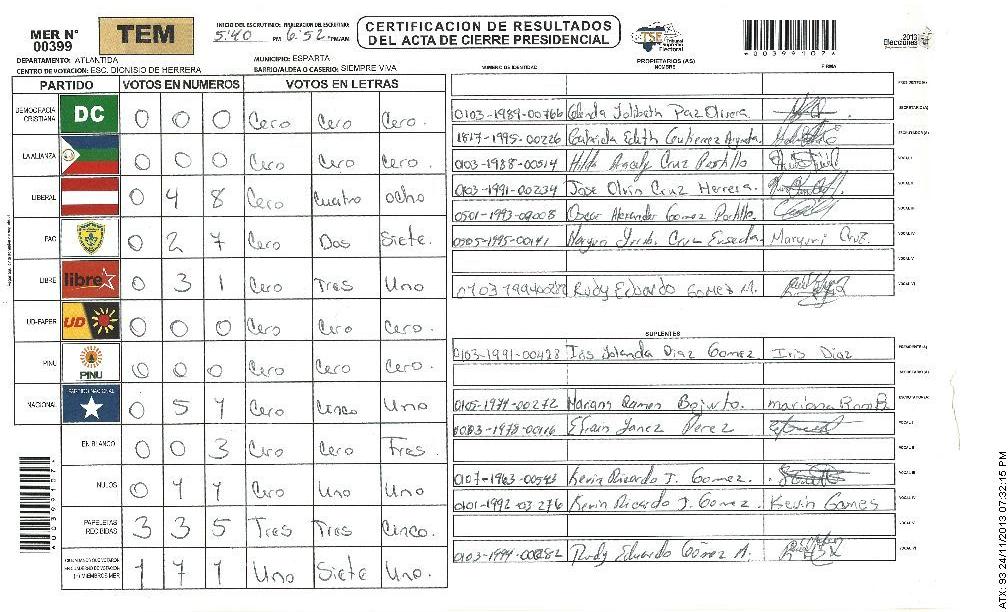 MER N° 00399
TEM
INICIO DEL ESCRUTINIO: FINALIZACION DEL ESCRUTINIO:
5:40 PM 6:52 PM/AM
CERTIFICACION DE RESULTADOS
DEL ACTA DE CIERRE PRESIDENCIAL
TSE Tribunal Supremo Electoral
*00399107*
2013 Elecciones
DEPARTAMENTO: ATLANTIDA
MUNICIPIO: ESPARTA
CENTRO DE VOTACION: ESC. DIONISIO DE HERRERA
BARRIO/ALDEA O CASERIO: SIEMPRE VIVA
PARTIDO VOTOS EN NUMEROS VOTOS EN LETRAS
DEMOCRACIA CRISTIANA DC 0 0 0 Cero Cero Cero.
LA ALIANZA 0 0 0 Cero Cero Cero.
LIBERAL 0 4 8 Cero Cuatro ocho
PAC 0 2 7 Cero Dos Siete.
LIBRE libre 0 3 1 Cero Tres Uno
UD-FAPER UD 0 0 0 Cero Cero Cero.
PINU PINU 0 0 0 Cero Cero Cero.
NACIONAL PARTIDO NACIONAL 0 5 1 Cero Cinco Uno
EN BLANCO 0 0 3 Cero Cero Tres.
NULOS 0 1 1 Cero Uno Uno
PAPELETAS RECIBIDAS 3 3 5 Tres Tres Cinco.
CIUDADANOS QUE VOTARON EN CUADERNO DE VOTACION (+) MIEMBROS MER 1 7 1 Uno Siete Uno.
*00399107*
PROPIETARIOS (AS)
NUMERO DE IDENTIDAD NOMBRE FIRMA
PRESIDENTE(A)
0103-1989-00766 Glenda Jolibeth Paz Olivera SECRETARIO(A)
1817-1995-00226 Gabriela Edith Gutierrez ESCRUTADOR(A)
0103-1988-00514 Hilda Aracely Cruz Portillo VOCAL I
0103-1991-00234 Jose Olvin Cruz Herrera. VOCAL II
0501-1993-09008 Oscar Alexander Gomez Portillo. VOCAL III
0505-1995-00141 Cruz Maryuri Cruz. VOCAL IV
VOCAL V
Rudy Eduardo Gomez M. VOCAL VI
SUPLENTES
0103-1991-00428 Iris Yolanda Diaz Gomez Iris Diaz PRESIDENTE(A)
SECRETARIO(A)
0105-1979-00272 Ramos ESCRUTADOR(A)
Efrain Yanez Perez VOCAL I
VOCAL II
0107-1963-00543 Kevin Ricardo J. Gomez. VOCAL III
0101-1992-03276 Kevin Ricardo J. Gomez Kevin Gomes VOCAL IV
VOCAL V
0103-1994-00282 Rudy Eduardo Gómez M. VOCAL VI
ATX: 93 24/11/2013 07:32:15 PM